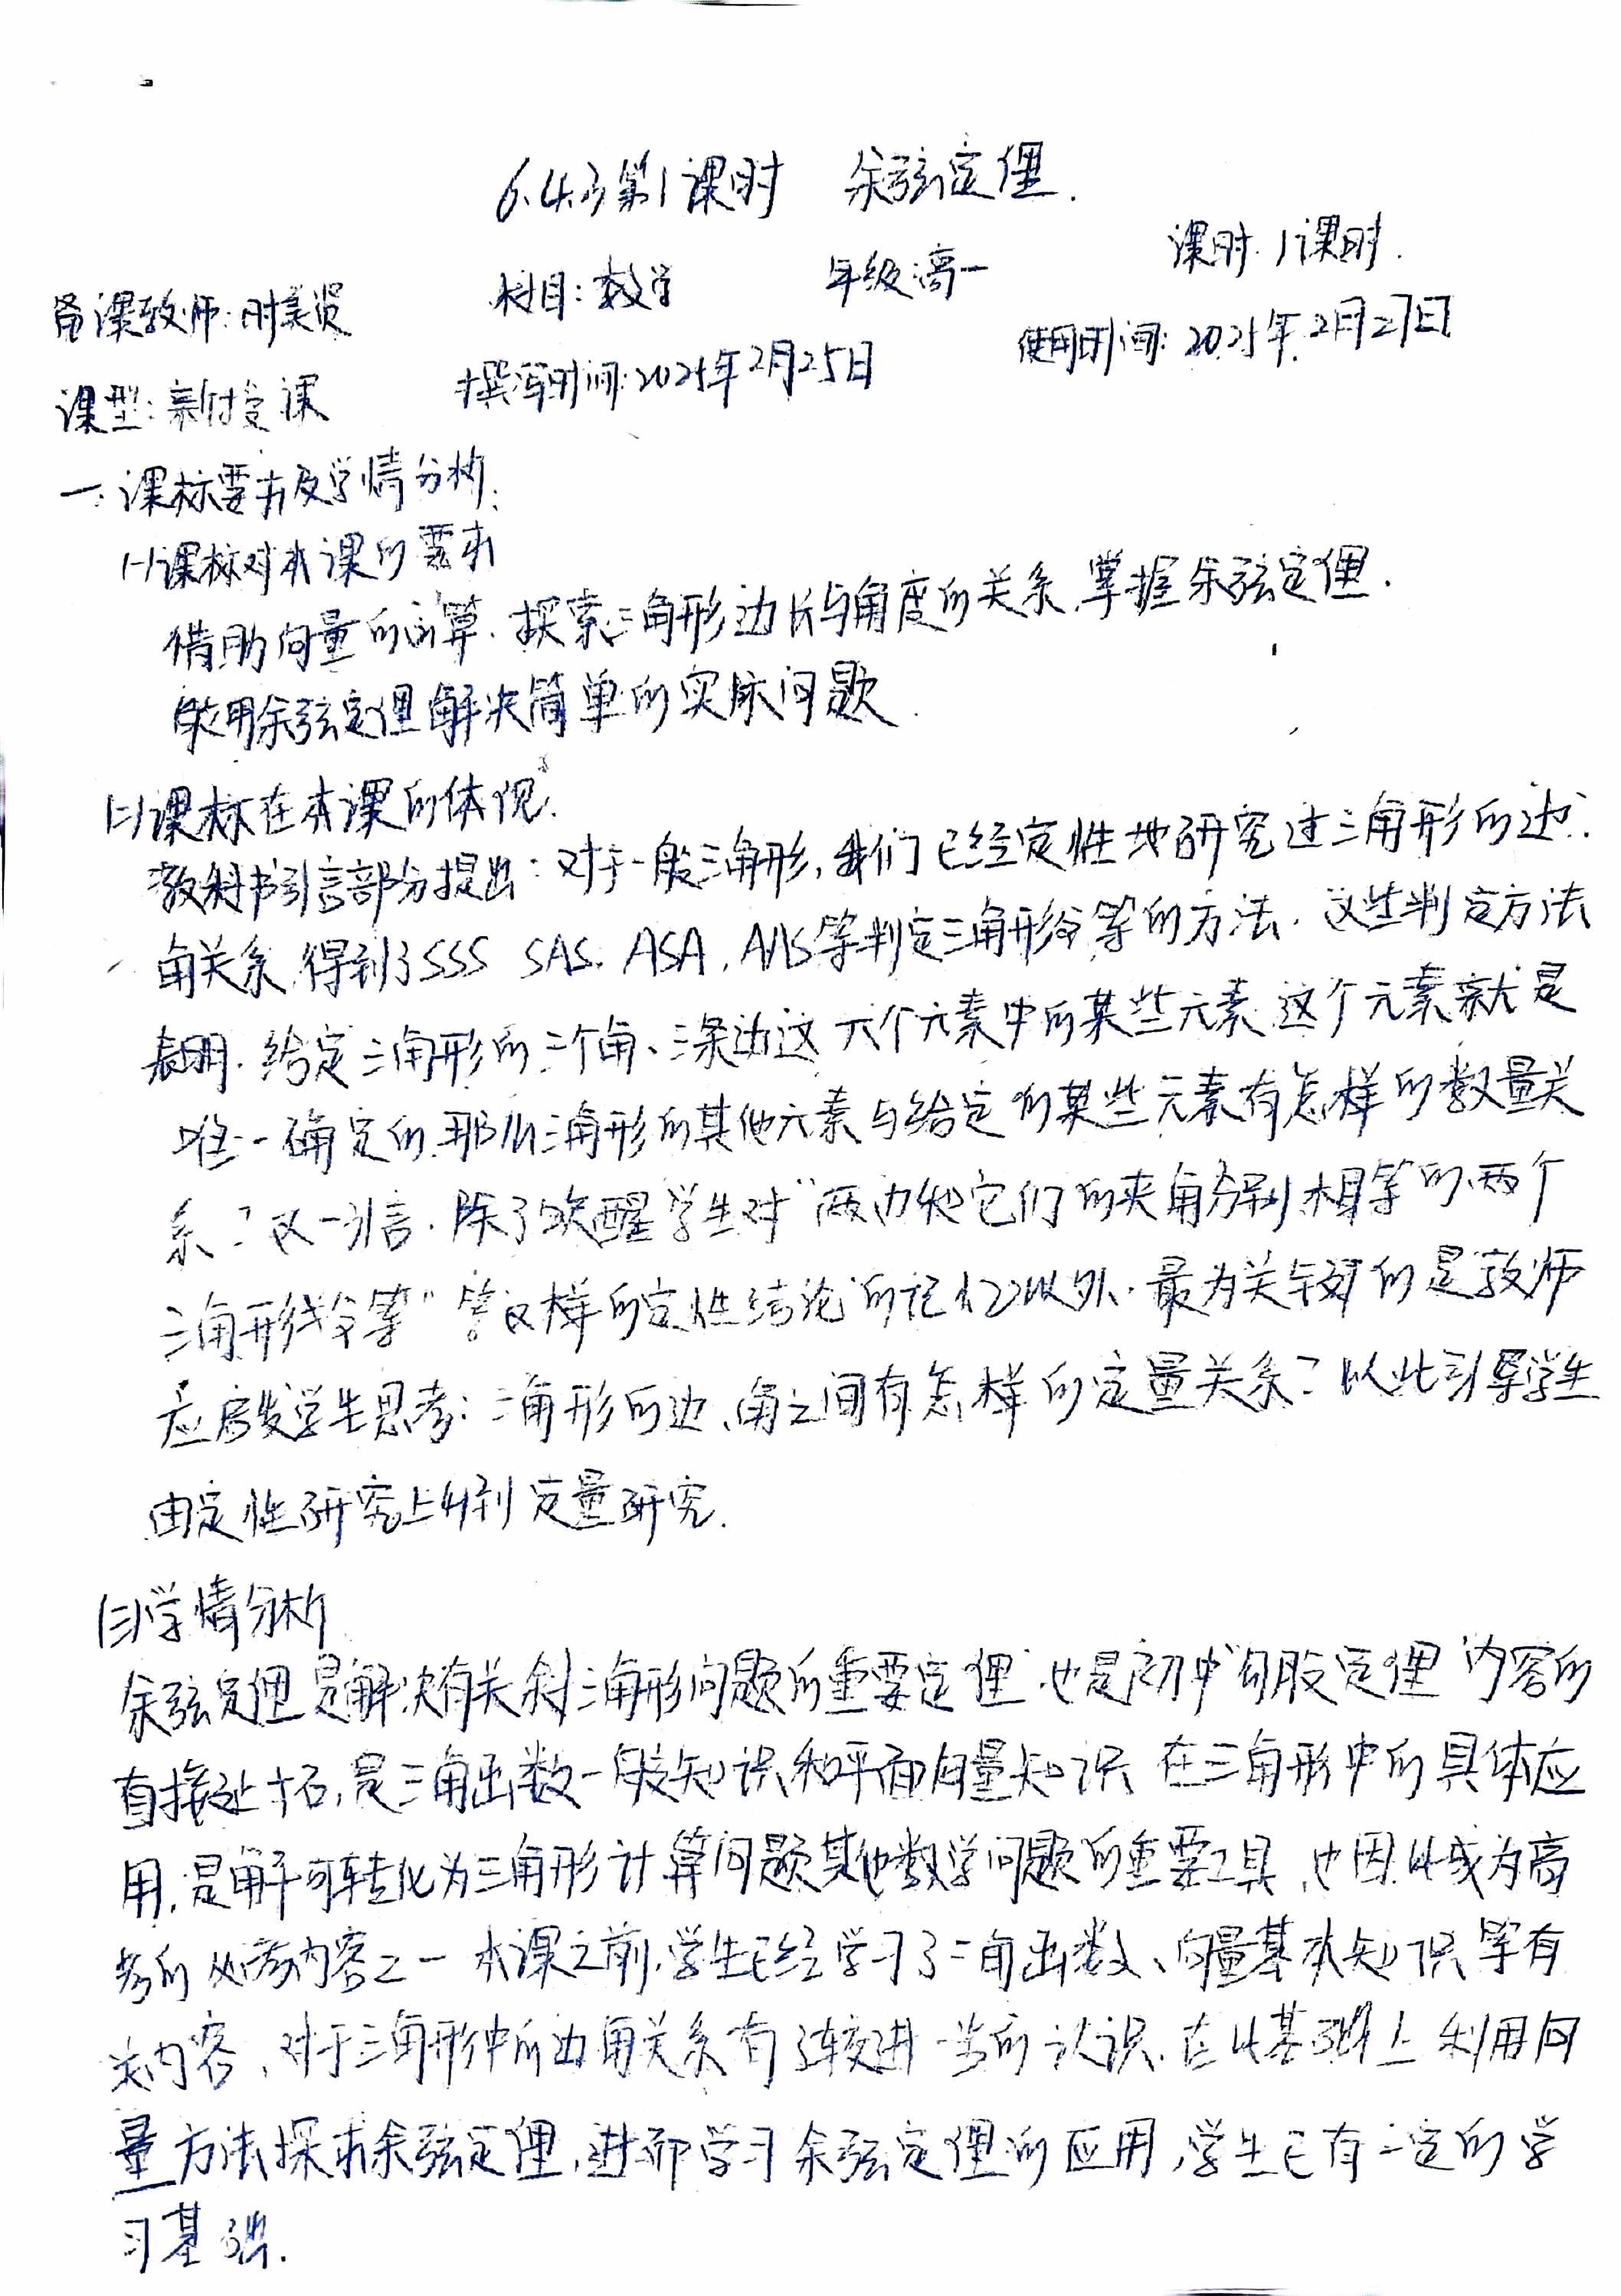 6.4.3第1课时 余弦定理.
备课教师:时美贤 科目:数学 年级:高一 课时:1课时.
课型:新授课 撰写时间:2025年2月25日 使用时间:2025年2月27日
一.课标要求及学情分析:
(一)课标对本课的要求
借助向量的运算.探索三角形边长与角度的关系,掌握余弦定理.
能用余弦定理解决简单的实际问题.
(二)课标在本课的体现.
教科书引言部分提出:对于一般三角形,我们已经定性地研究过三角形的边、
角关系,得到了SSS SAS. ASA, AAS等判定三角形全等的方法.这些判定方法
表明.给定三角形的三个角、三条边这六个元素中的某些元素,这个元素就是
唯一确定的.那么三角形的其他元素与给定的某些元素有怎样的数量关
系?这一引言.除了唤醒学生对“两边和它们的夹角分别相等的两个
三角形全等”等这样的定性结论的记忆以外.最为关键的是教师
应启发学生思考:三角形的边、角之间有怎样的定量关系?以此引导学生
由定性研究上升到定量研究.
(三)学情分析
余弦定理是解决有关斜三角形问题的重要定理,也是初中“勾股定理”内容的
直接延拓,是三角函数一般知识和平面向量知识在三角形中的具体应
用,是解可转化为三角形计算问题其他数学问题的重要工具,也因此成为高
考的必考内容之一.本课之前,学生已经学习了三角函数、向量基本知识等有
关内容,对于三角形中的边角关系有了较进一步的认识.在此基础上利用向
量方法探求余弦定理,进而学习余弦定理的应用,学生已有一定的学
习基础.